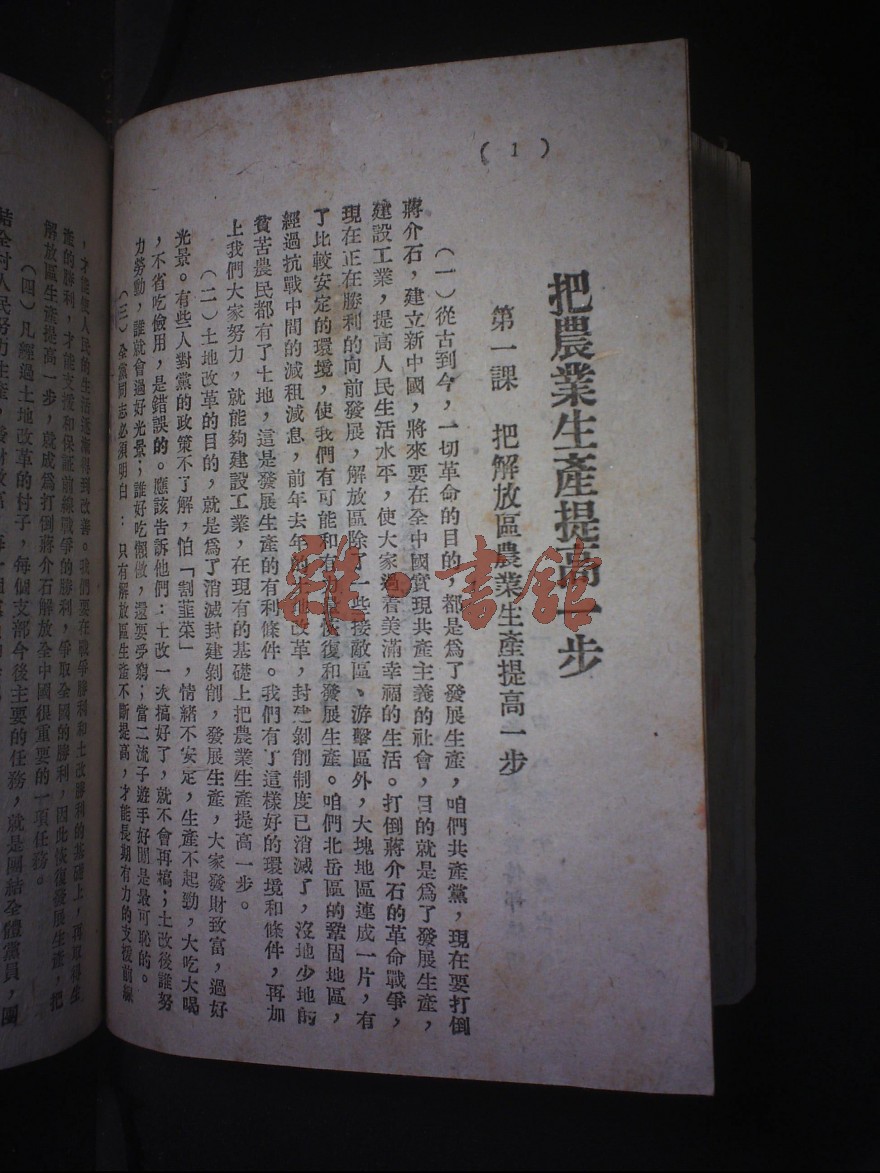 (1)
把農業生產提高一步
第一課 把解放區農業生產提高一步
(一)從古到今,一切革命的目的,都是爲了發展生產,咱們共產黨,現在要打倒
蔣介石,建立新中國,將來要在全中國實現共產主義的社會,目的就是爲了發展生產,
建設工業,提高人民生活水平,使大家過着美滿幸福的生活。打倒蔣介石的革命戰爭,
現在正在勝利的向前發展,解放區除了一些接敵區、游擊區外,大塊地區連成一片,有
了比較安定的環境,使我們有可能和有力量恢復和發展生產。咱們北岳區的鞏固地區,
經過抗戰中間的減租減息,前年去年的土地改革,封建剝削制度已消滅了,沒地少地的
貧苦農民都有了土地,這是發展生產的有利條件。我們有了這樣好的環境和條件,再加
上我們大家努力,就能夠建設工業,在現有的基礎上把農業生產提高一步。
(二)土地改革的目的,就是爲了消滅封建剝削,發展生產,大家發財致富,過好
光景。有些人對黨的政策不了解,怕「割韮菜」,情緒不安定,生產不起勁,大吃大喝
,不省吃儉用,是錯誤的。應該告訴他們:土改一次搞好了,就不會再搞;土改後誰努
力勞動,誰就會過好光景;誰好吃懶做,還要受窮;當二流子遊手好閒是最可恥的。
(三)全黨同志必須明白:只有解放區生產不斷提高,才能長期有力的支援前線
,才能使人民的生活逐漸得到改善。我們要在戰爭勝利和土改勝利的基礎上,再取得生
產的勝利,才能支援和保証前線戰爭的勝利,爭取全國的勝利,因此恢復發展生產,把
解放區生產提高一步,就成爲打倒蔣介石解放全中國很重要的一項任務。
(四)凡經過土地改革的村子,每個支部今後主要的任務,就是團結全體黨員,團
結全村人民努力生產,發財致富
雜·書館